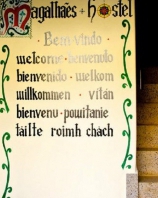 Magalhães + Hostel
· Bem-vindo ·
welcome · benvenuto
bienvenido · welkom
willkommen · vítán
bienvenu · powitanie
táilte roimh chách